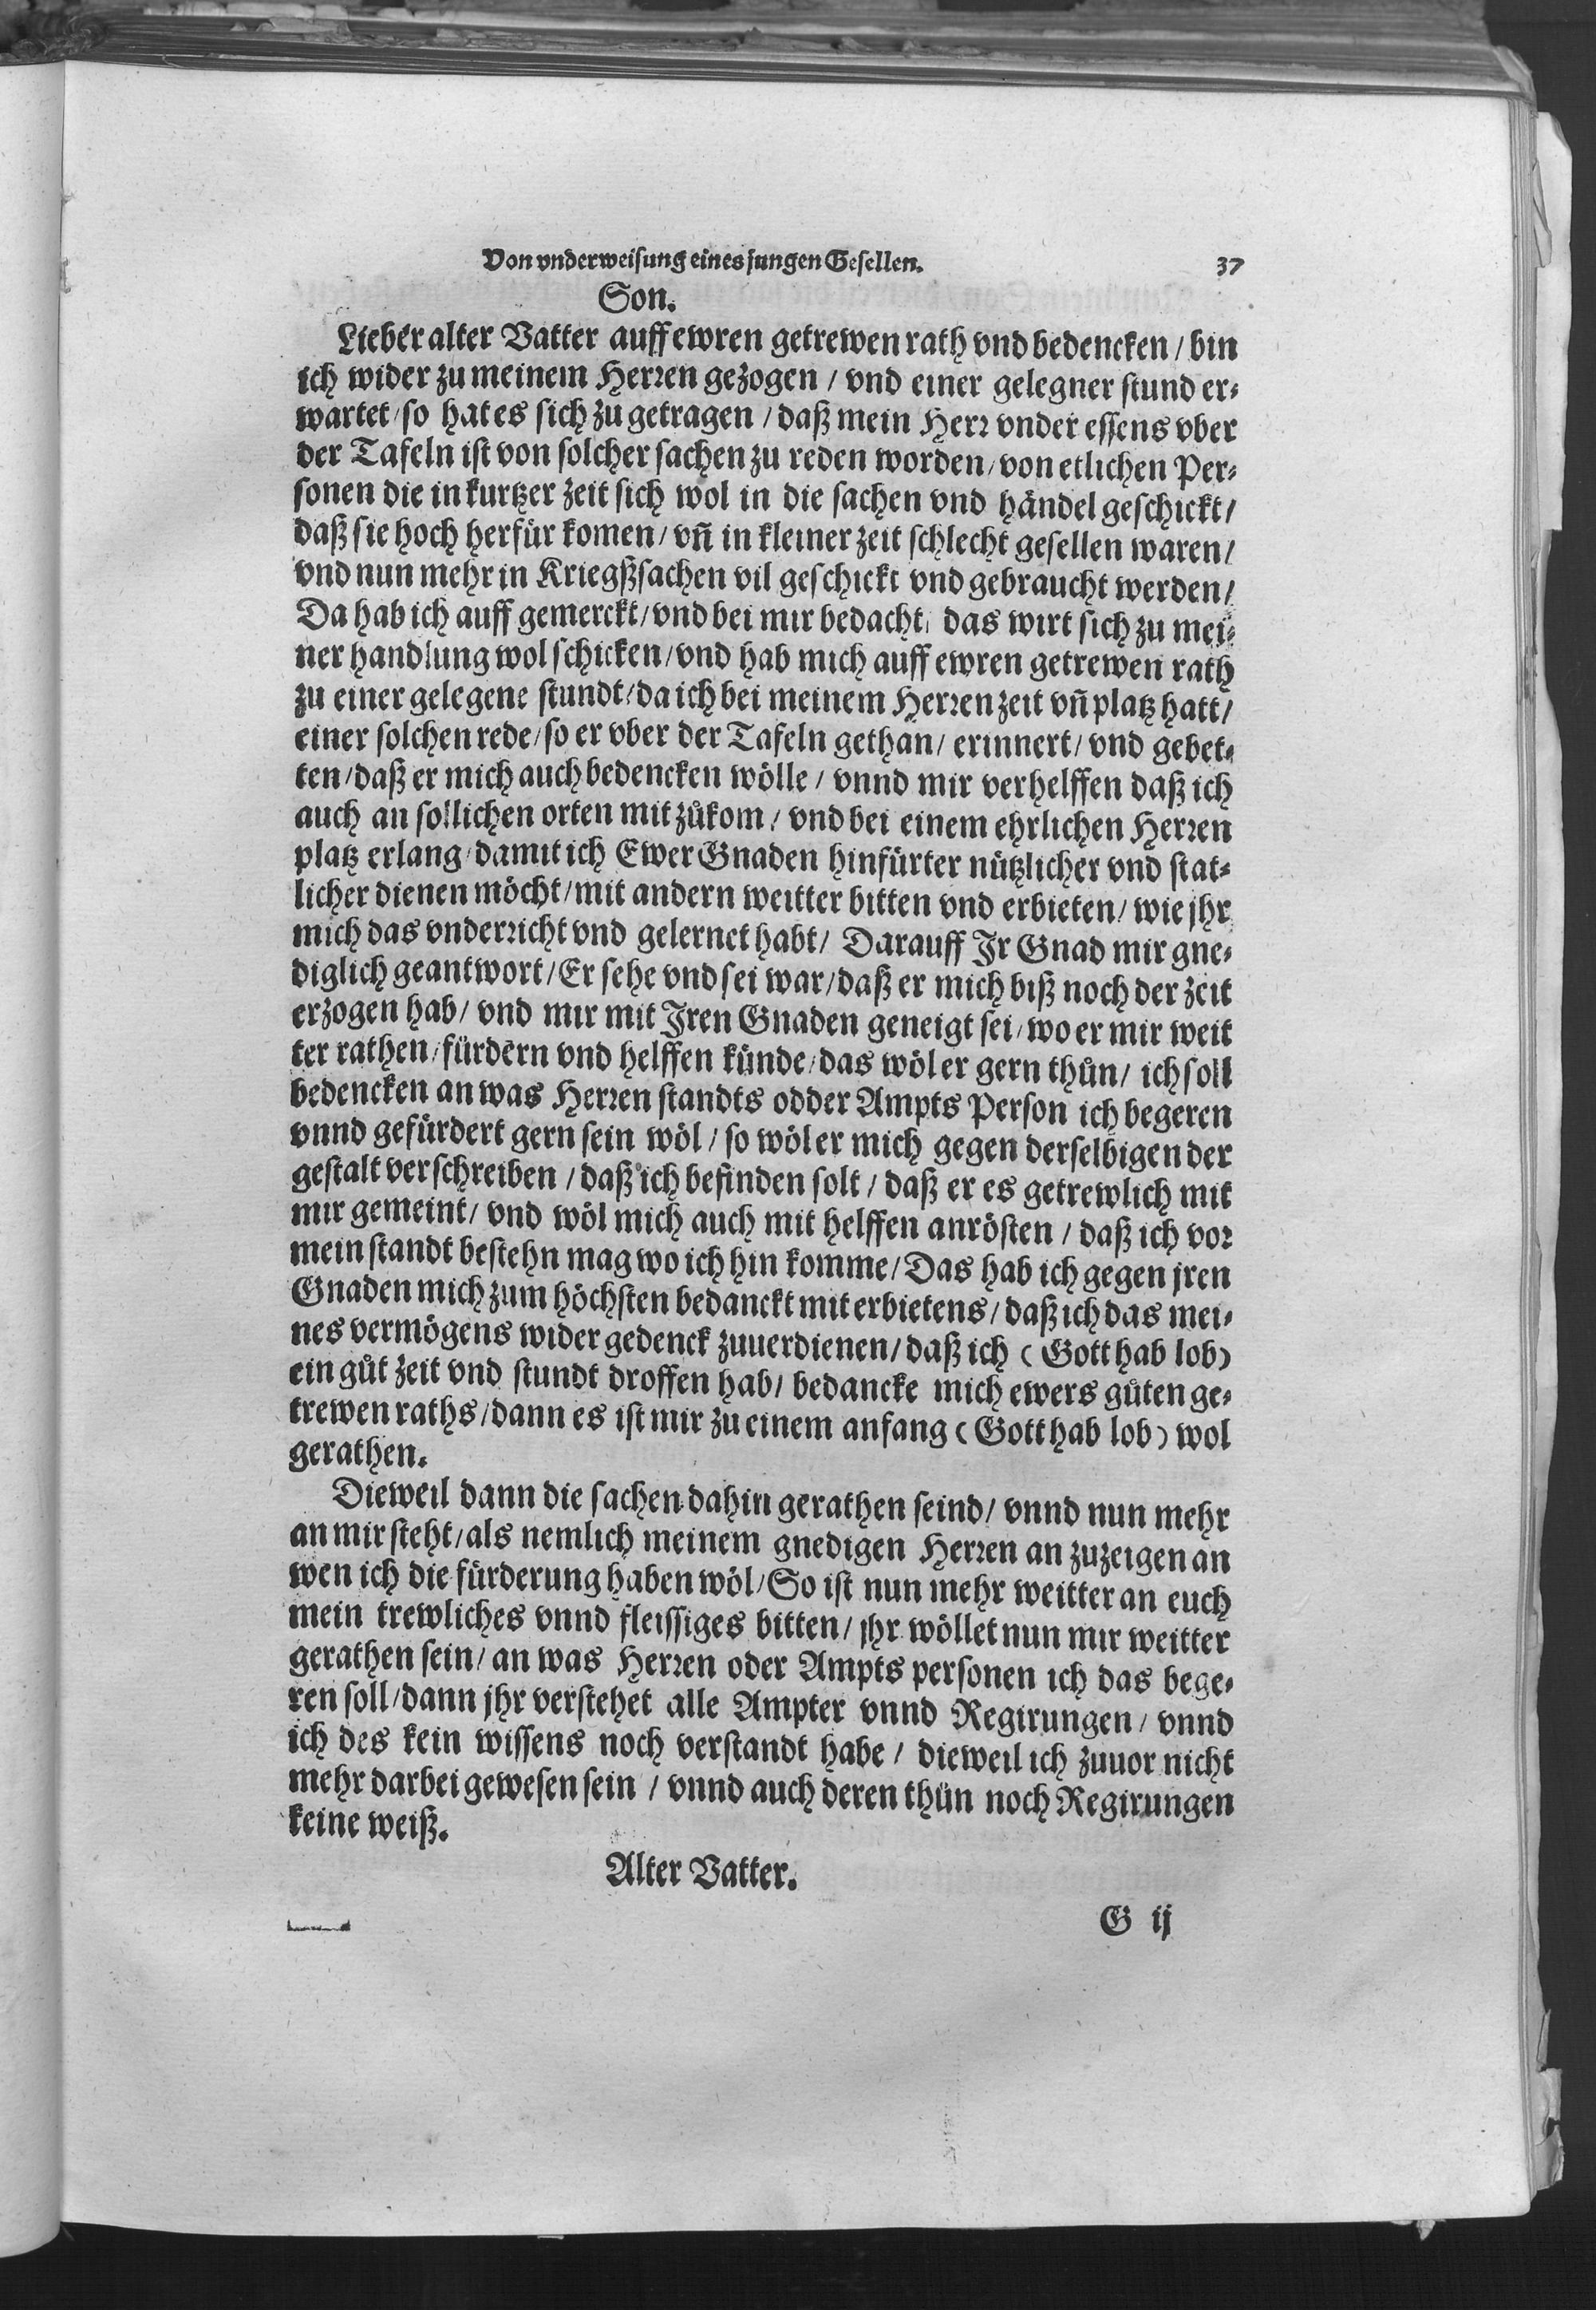 Von vnderweisung eines jungen Gesellen. 37
Son.
Lieber alter Vatter auff ewren getrewen rath vnd bedencken / bin
ich wider zu meinem Herren gezogen / vnd einer gelegner stund er-
wartet / so hat es sich zu getragen / daß mein Herr vnder essens vber
der Tafeln ist von solcher sachen zu reden worden / von etlichen Per-
sonen die in kurtzer zeit sich wol in die sachen vnd händel geschickt /
daß sie hoch herfür komen / vñ in kleiner zeit schlecht gesellen waren /
vnd nun mehr in Kriegßsachen vil geschickt vnd gebraucht werden /
Da hab ich auff gemerckt / vnd bei mir bedacht / das wirt sich zu mei-
ner handlung wol schicken / vnd hab mich auff ewren getrewen rath
zu einer gelegene stundt / da ich bei meinem Herren zeit vñ platz hatt /
einer solchen rede / so er vber der Tafeln gethan / erinnert / vnd gebet-
ten / daß er mich auch bedencken wölle / vnnd mir verhelffen daß ich
auch an sollichen orten mit zůkom / vnd bei einem ehrlichen Herren
platz erlang / damit ich Ewer Gnaden hinfürter nützlicher vnd stat-
licher dienen möcht / mit andern weitter bitten vnd erbieten / wie jhr
mich das vnderricht vnd gelernet habt / Darauff Ir Gnad mir gne-
diglich geantwort / Er sehe vnd sei war / daß er mich biß noch der zeit
erzogen hab / vnd mir mit Iren Gnaden geneigt sei / wo er mir weit
ter rathen / fürdern vnd helffen künde / das wöl er gern thůn / ich soll
bedencken an was Herren standts odder Ampts Person ich begeren
vnnd gefürdert gern sein wöl / so wöl er mich gegen derselbigen der
gestalt verschreiben / daß ich befinden solt / daß er es getrewlich mit
mir gemeint / vnd wöl mich auch mit helffen anrösten / daß ich vor
mein standt bestehn mag wo ich hin komme / Das hab ich gegen jren
Gnaden mich zum höchsten bedanckt mit erbietens / daß ich das mei-
nes vermögens wider gedenck zuuerdienen / daß ich (Gott hab lob)
ein gůt zeit vnd stundt droffen hab / bedancke mich ewers gůten ge-
trewen raths / dann es ist mir zu einem anfang (Gott hab lob) wol
gerathen.
Dieweil dann die sachen dahin gerathen seind / vnnd nun mehr
an mir steht / als nemlich meinem gnedigen Herren an zuzeigen an
wen ich die fürderung haben wöl / So ist nun mehr weitter an euch
mein trewliches vnnd fleissiges bitten / jhr wöllet nun mir weitter
gerathen sein / an was Herren oder Ampts personen ich das bege-
ren soll / dann jhr verstehet alle Ampter vnnd Regirungen / vnnd
ich des kein wissens noch verstandt habe / dieweil ich zuuor nicht
mehr darbei gewesen sein / vnnd auch deren thůn noch Regirungen
keine weiß.
Alter Vatter.
G ij